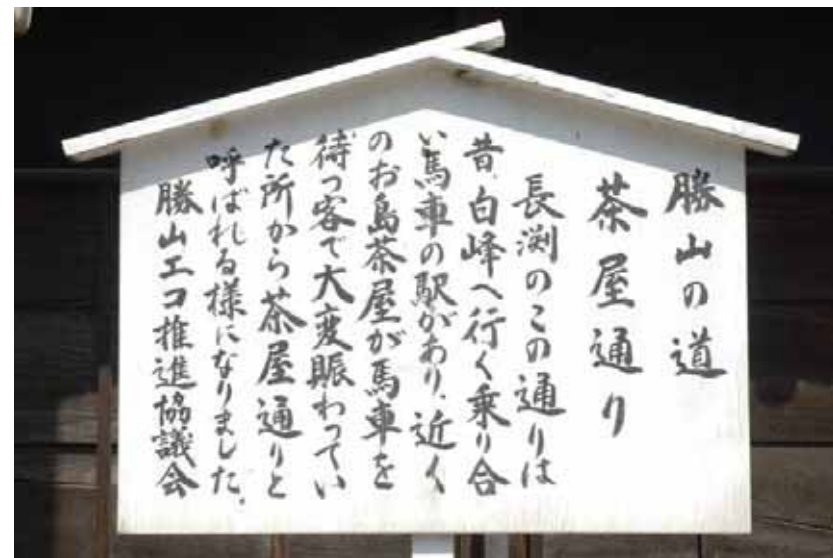 勝山の道
茶屋通り
長渕のこの通りは
昔、白峰へ行く乗り合
い馬車の駅があり、近く
のお島茶屋が馬車を
待つ客で大変賑わってい
た所から茶屋通りと
呼ばれる様になりました。
勝山エコ推進協議会